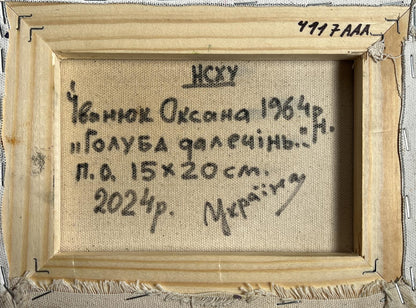 4117AAA
НСХУ
Іванюк Оксана 1964р.н.
„Голуба далечінь".
п.о. 15×20см.
2024р. Україна